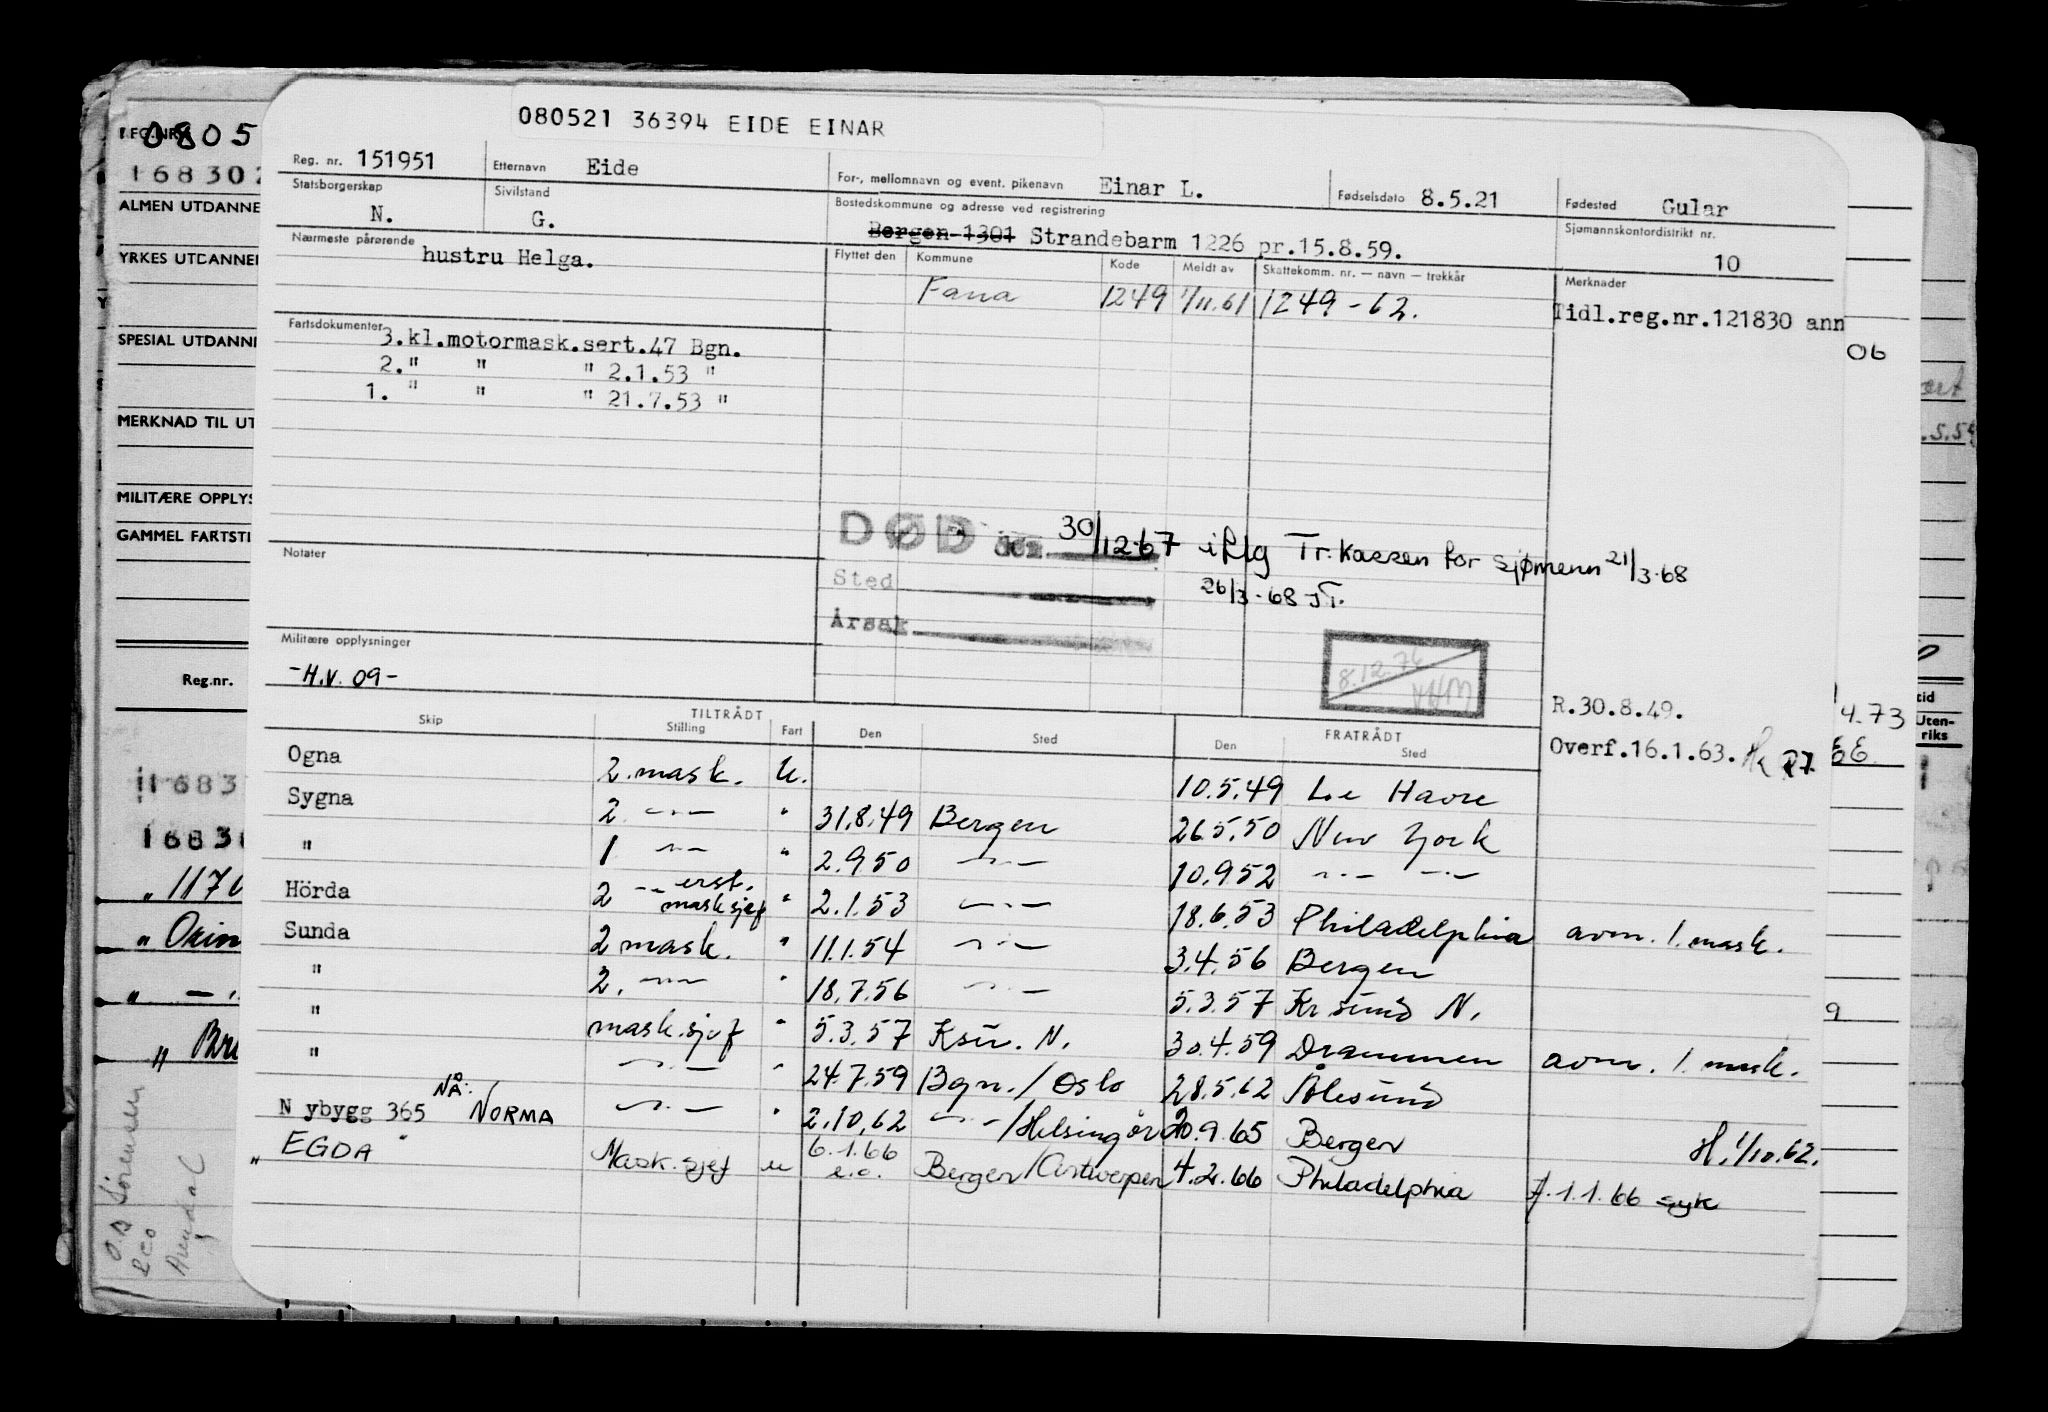 080521 36394 EIDE EINAR
Reg. nr. 151951 Etternavn Eide For-, mellomnavn og event. pikenavn Einar L. Fødselsdato 8.5.21 Fødested Gular
Statsborgerskap N. Sivilstand G. Bostedskommune og adresse ved registrering Bergen 1301 Strandebarm 1226 pr.15.8.59. Sjømannskontordistrikt nr. 10
Nærmeste pårørende hustru Helga. Flyttet den Kommune Kode Meldt av Skattekomm. nr. — navn — trekkår Merknader
Fana 1249 1/11.61 1249-62. Tidl.reg.nr.121830 ann
06
Fartsdokumenter 3.kl.motormask.sert.47 Bgn.
2." " " 2.1.53 "
1. " " " 21.7.53 "
DØD den 30/12-67 iflg Tr.kassen for sjømenn 21/3-68
Sted 26/3-68 JT.
Årsak
Notater
8.12.76
Militære opplysninger
-H.V. 09-
R.30.8.49.
Overf.16.1.63.
4.73
Skip TILTRÅDT Stilling Fart Den Sted FRATRÅDT Den Sted
Ogna 2. mask. U. 10.5.49 Le Havre
Sygna 2. -"- " 31.8.49 Bergen 26.5.50 New York
" 1 -"- " 2.9.50 -"- 10.9.52 -"- -"-
Hörda 2 -"- erst. masksjef " 2.1.53 -"- 18.6.53 Philadelphia avm. 1. mask.
Sunda 2 mask. " 11.1.54 -"- 3.4.56 Bergen
" 2. -"- " 18.7.56 -"- 5.3.57 Kr.sund N.
" mask.sjef " 5.3.57 Ksu. N. 30.4.59 Drammen avm. 1. mask.
" -"- " 24.7.59 Bgn./Oslo 28.5.62 Ålesund
N ybygg 365 NÅ: NORMA -"- " 2.10.62 -"-/Helsingør 20.9.65 Bergen H. 1/10.62.
" EGDA " Mask.sjef u 6.1.66 e.o. Bergen/Antwerpen 4.2.66 Philadelphia f. 1.1.66 syk
0805
168302
ALMEN UTDANNE
YRKES UTDANNEL
SPESIAL UTDANNE
MERKNAD TIL UT
MILITÆRE OPPLYS
GAMMEL FARTSTI
Reg.nr.
1683
1683
" 1176
" Orin
" -
" Bru
O.B Sørensen
&co
Arendal
.5.59
tid
Uten-
riks
9